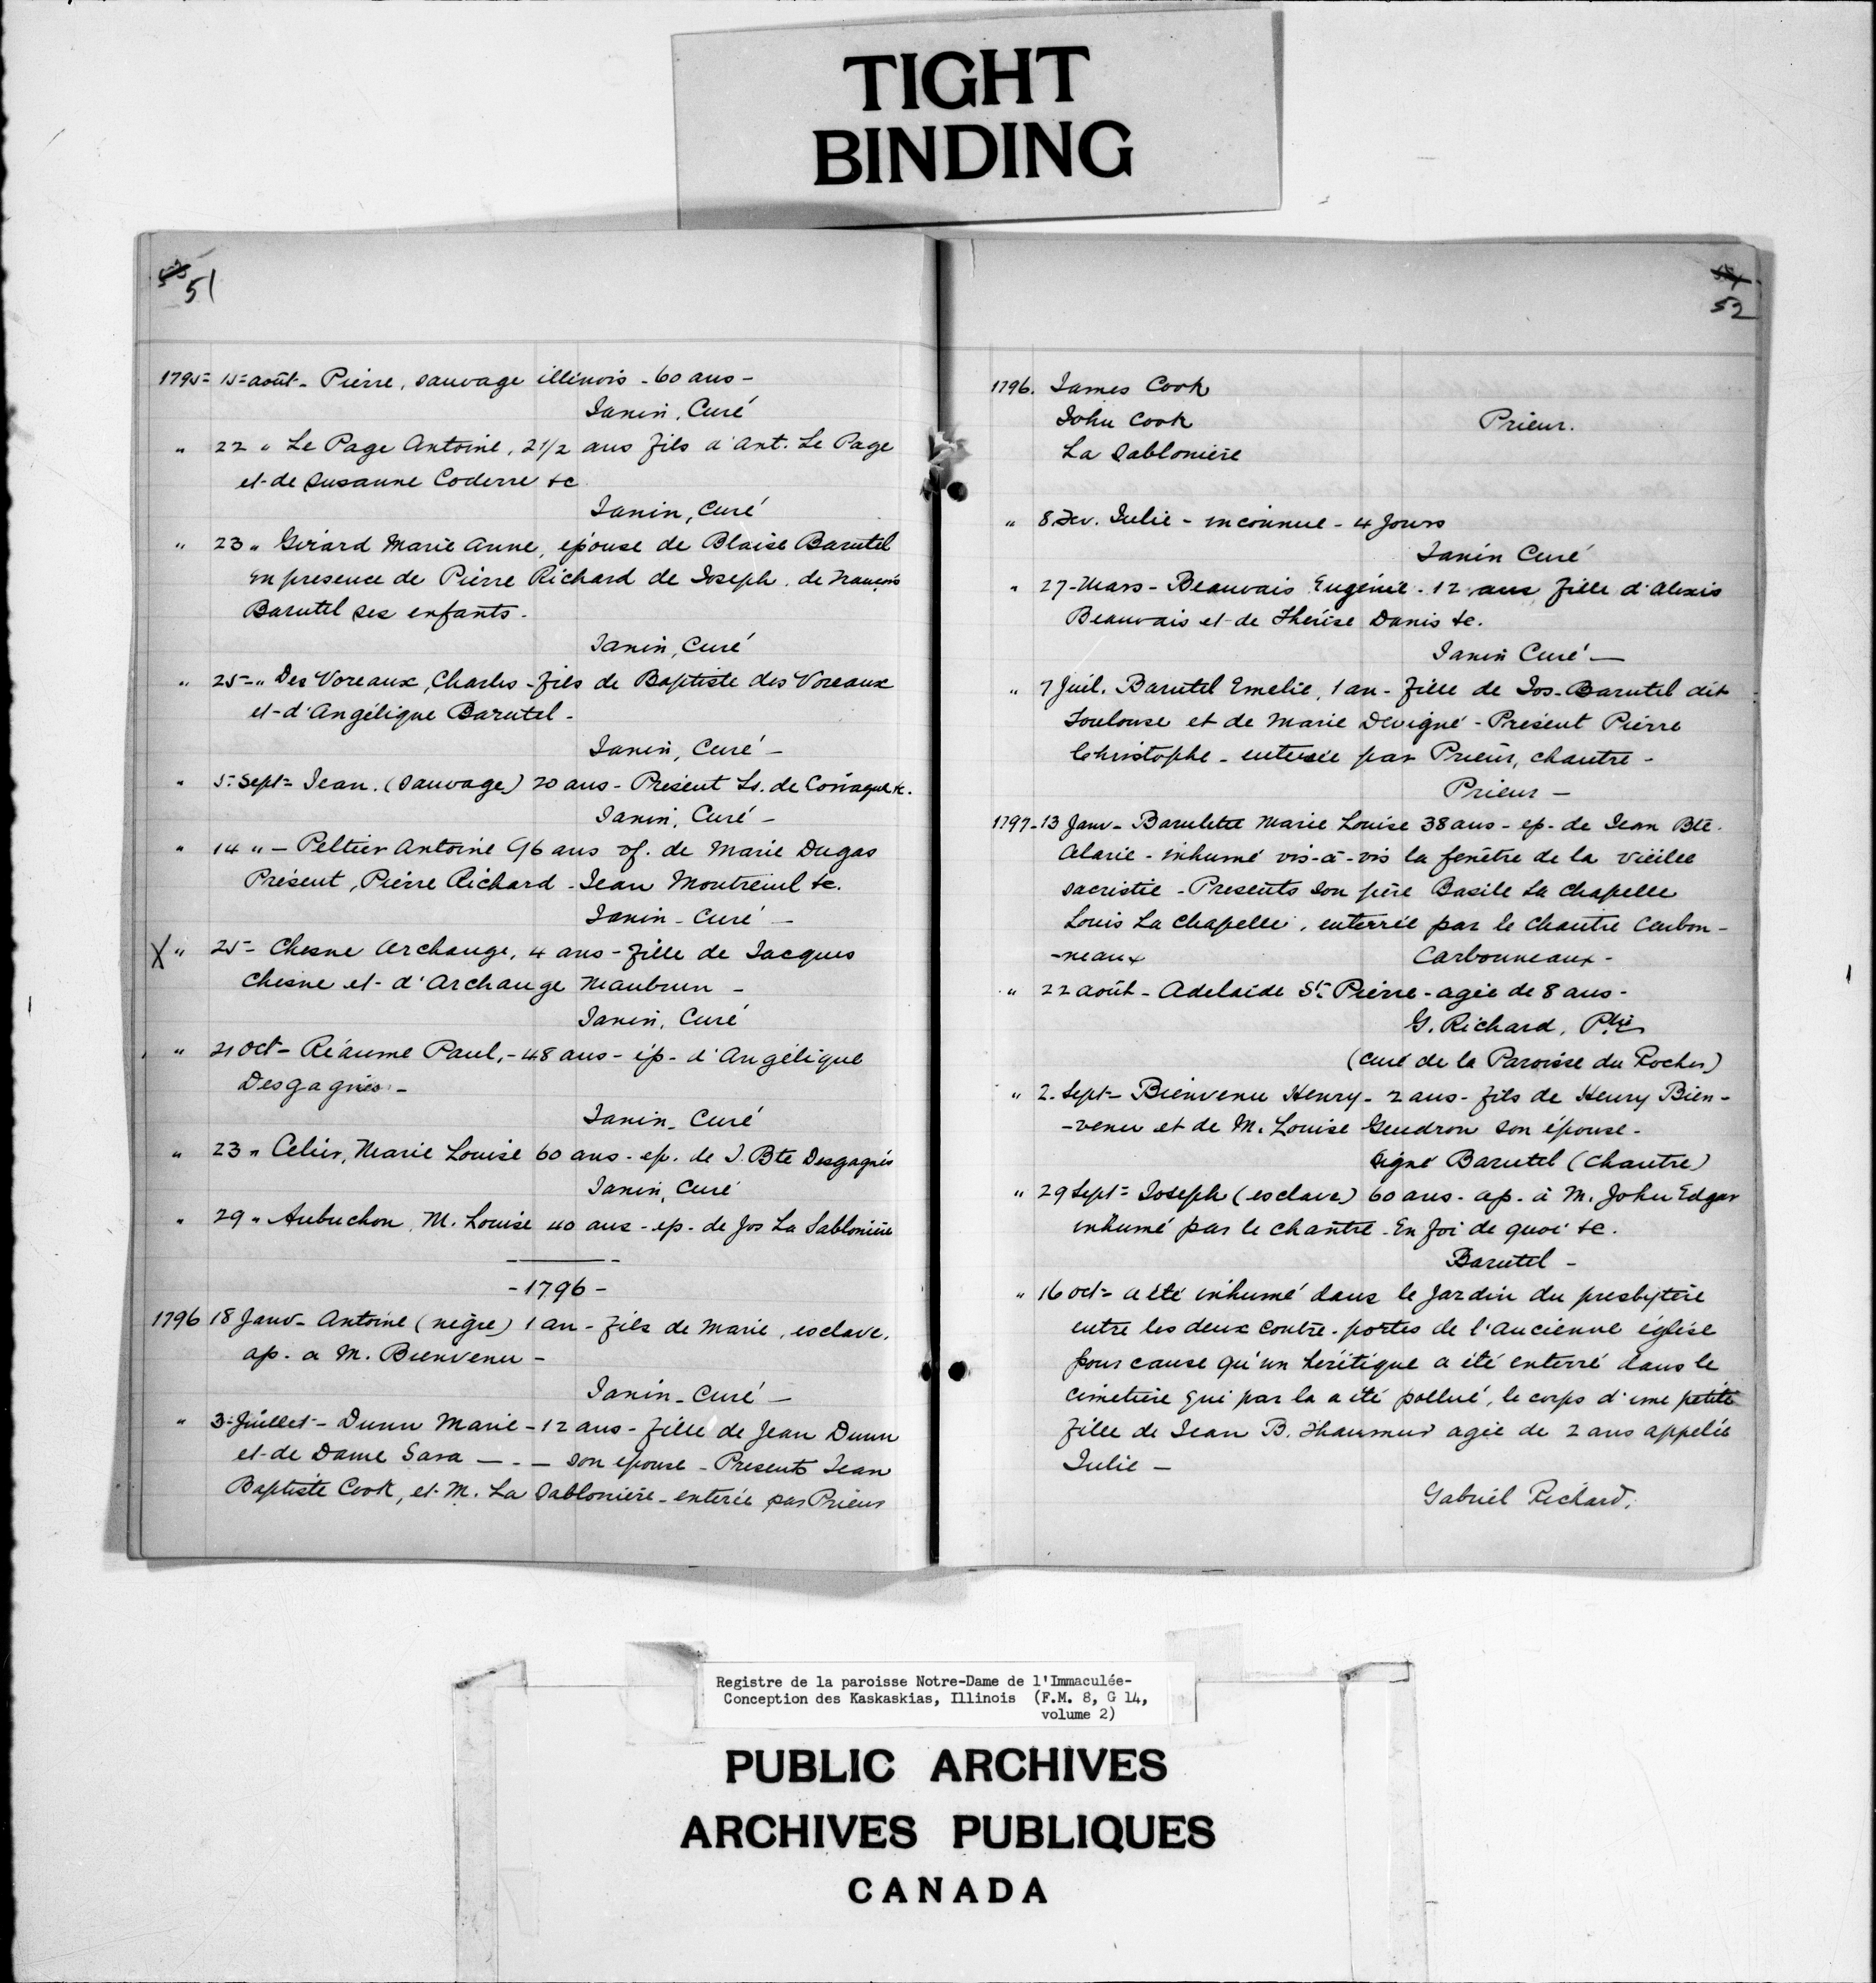 TIGHT
BINDING
51
1795= 15= août - Pierre, sauvage illinois - 60 ans -
Janin, Curé
" 22 " Le Page Antoine, 2 1/2 ans fils d'Ant. Le Page
et de Susanne Coderre &c
Janin, Curé
" 23 " Girard Marie Anne, épouse de Blaise Barutel
En presence de Pierre Richard de Joseph, de François
Barutel ses enfants -
Janin, Curé
" 25 - " Des Voreaux, Charles - fils de Baptiste des Voreaux
et d'Angélique Barutel -
Janin, Curé -
" 5 - Sept = Jean. (Sauvage) 20 ans - Présent Ls. de &c.
Janin, Curé -
" 14 " - Peltier Antoine 96 ans vf. de Marie Dugas
Présent, Pierre Richard - Jean Montreuil &c.
Janin - Curé -
X " 25 - Chesne Archange, 4 ans - fille de Jacques
Chesne et d'Archange Maubrun -
Janin, Curé
" 21 Oct - Réaume Paul, - 48 ans - ép - d'Angélique
Desgagnés -
Janin - Curé
" 23 " Marie Louise 60 ans - ep. de J. Bte Desgagnés
Janin, Curé
" 29 " Aubuchon, M. Louise 40 ans - ep - de Jos La Sablonière
- 1796 -
1796 18 Janv - Antoine (nègre) 1 an - fils de Marie, esclave,
ap - a M. Bienvenu -
Janin - Curé -
" 3 = Juillet - Dunn Marie - 12 ans - fille de Jean Dunn
et de Dame Sara — - — son epouse - Presents Jean
Baptiste Cook, et M. La Sablonière - enterée par Prieur
52
1796. James Cook
John Cook Prieur.
La Sablonière
" 8 Fev. Julie - inconnue - 4 Jours
Janin Curé
" 27 - Mars - Beauvais Eugénie - 12 ans fille d'Alexis
Beauvais et de Thérèse Danis &c.
Janin Curé —
" 7 Juil. Barutel Emelie, 1 an - fille de Jos - Barutel dit
Toulouse et de Marie Devigné - Présent Pierre
Christophe - enterrée par Prieur, chantre -
Prieur —
1797 - 13 Janv - Barulette Marie Louise 38 ans - ep - de Jean Bte.
Alarie - inhumé vis-à-vis la fenêtre de la vieille
sacristie - Presents son père Basile La Chapelle
Louis La Chapelle, enterrée par le Chantre Carbon-
-neaux Carbonneaux -
" 22 août - Adelaide St. Pierre - agée de 8 ans -
G. Richard, Ptre
(curé de la Paroisse du Rocher)
" 2 - Sept - Bienvenu Henry - 2 ans - fils de Henry Bien-
-venu et de M. Louise Gendron son épouse -
Signé Barutel (Chantre)
" 29 Sept = Joseph (esclave) 60 ans - ap - à M. John Edgar
inhumé par le chantre - En foi de quoi &c.
Barutel -
" 16 oct = a été inhumé dans le Jardin du presbytère
entre les deux contre-portes de l'ancienne église
pour cause qu'un hérétique a été enterré dans le
cimetière qui par la a été pollué, le corps d'une petite
fille de Jean B. agée de 2 ans appelée
Julie —
Gabriel Richard,
Registre de la paroisse Notre-Dame de l'Immaculée-
Conception des Kaskaskias, Illinois (F.M. 8, G 14,
volume 2)
PUBLIC ARCHIVES
ARCHIVES PUBLIQUES
CANADA